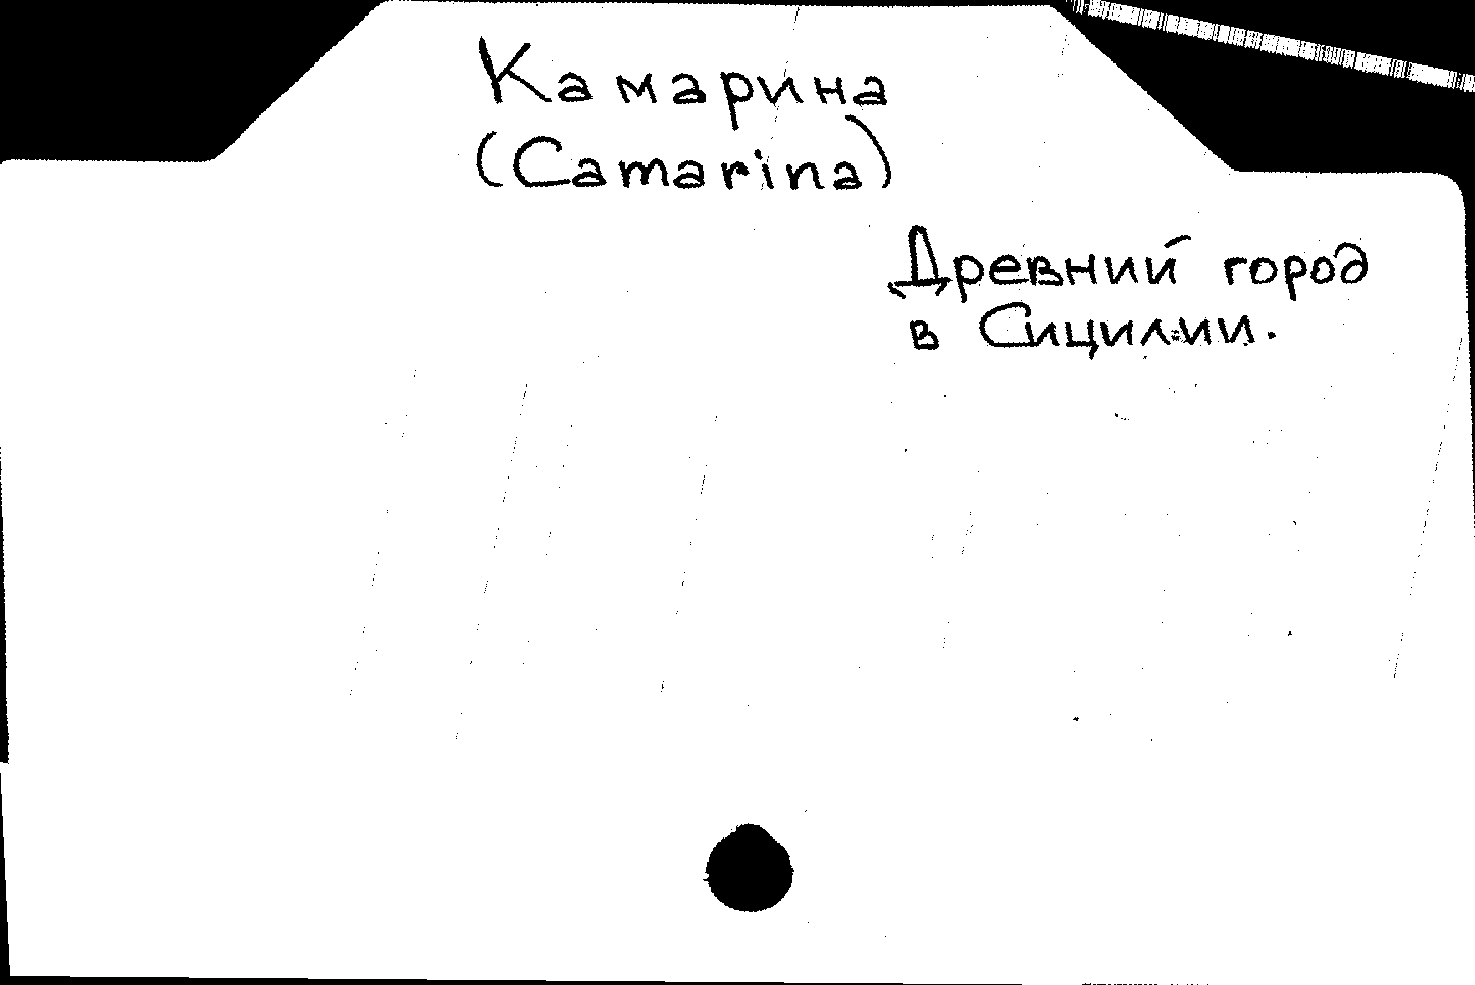 Камарина
(Camarina)
Древний город
в Сицилии.